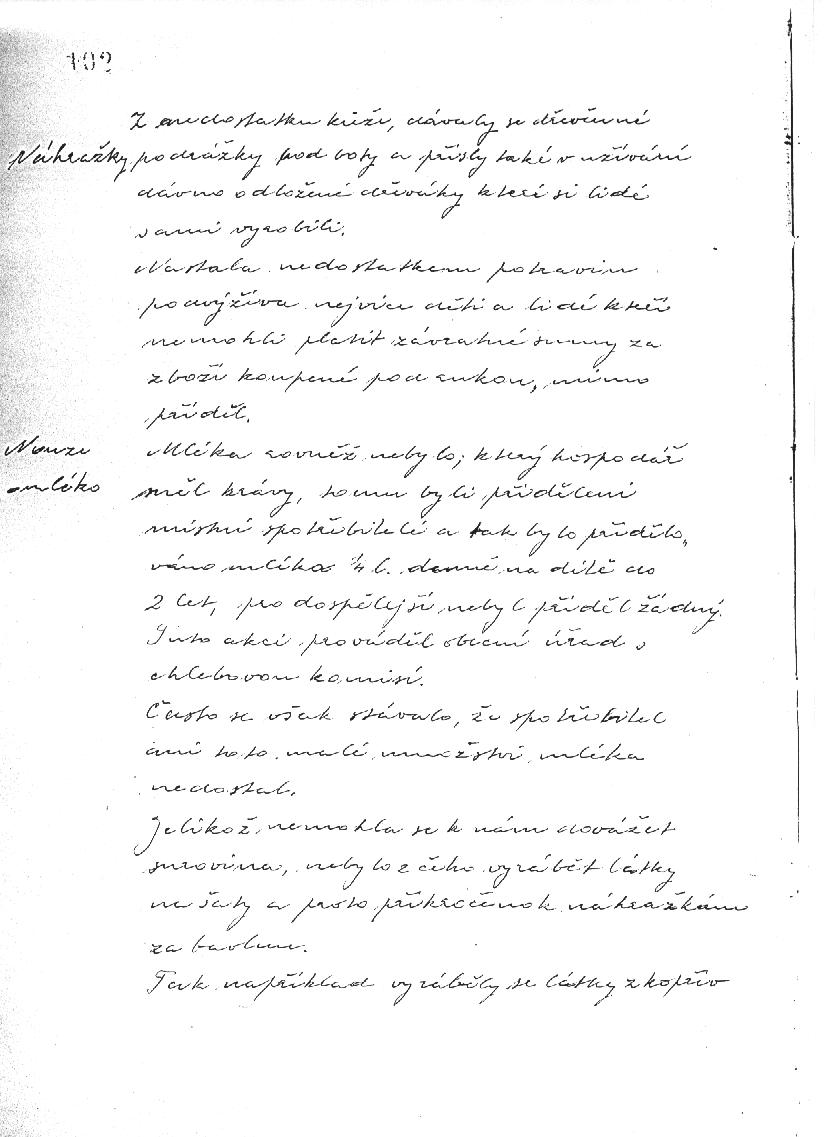 102
Z nedostatku kůži, dávaly se dřevěnné
Náhražky podrážky pod boty a přišly také v užívání
dávno odložené dřeváky kteří si lidé
sami vyrobili.
Nastala nedostatkem potravin
podvýživa nejvíce děti a lidé kteří
nemohli platit závratné sumy za
zboží koupené pod rukou, mimo
příděl.
Nouze Mléka rovněž nebylo; který hospodář
o mléko měl krávy, tomu byli přiděleni
místní spotřebitelé a tak bylo přidělo„
váno mléka 1/4 l. denně na dítě do
2 let, pro dospělejší nebyl příděl žádný.
Tuto akci prováděl obecní úřad s
chlebovou komisí.
Často se však stávalo, že spotřebitel
ani toto malé množství mléka
nedostal.
Jelikož nemohla se k nám dovážet
surovina, nebylo z čeho vyrábět látky
na šaty a proto přikročeno k náhražkám
za bavlnu.
Tak například vyráběly se látky z kopřiv